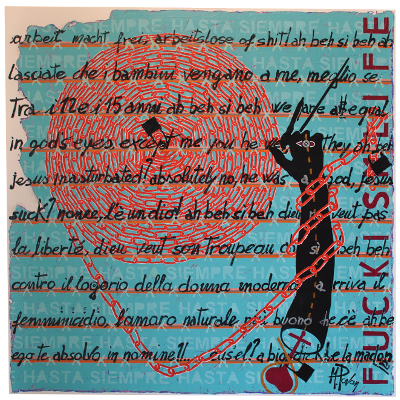 HASTA SIEMPRE HASTA SIEMPRE
arbeit macht frei, arbeitslose of shit! ah beh si beh ah
lasciate che i bambini vengano a me, meglio se
tra i 12 e i 15 anni ah beh si beh we are all equal
in god's eyes except me you he we They ah beh
jesus masturbated? absolutely no, he was a god, jesus
suck? nonee, c'è un dio! ah beh si beh dieu veut pas
la liberté, dieu veut son troupeau si beh beh
contro il logorio della donna moderna arriva il
femminicidio, l'amore naturale più buono che c'è ah be
ego te absolvo in nomine!!.. la madon
FUCK IS LIFE